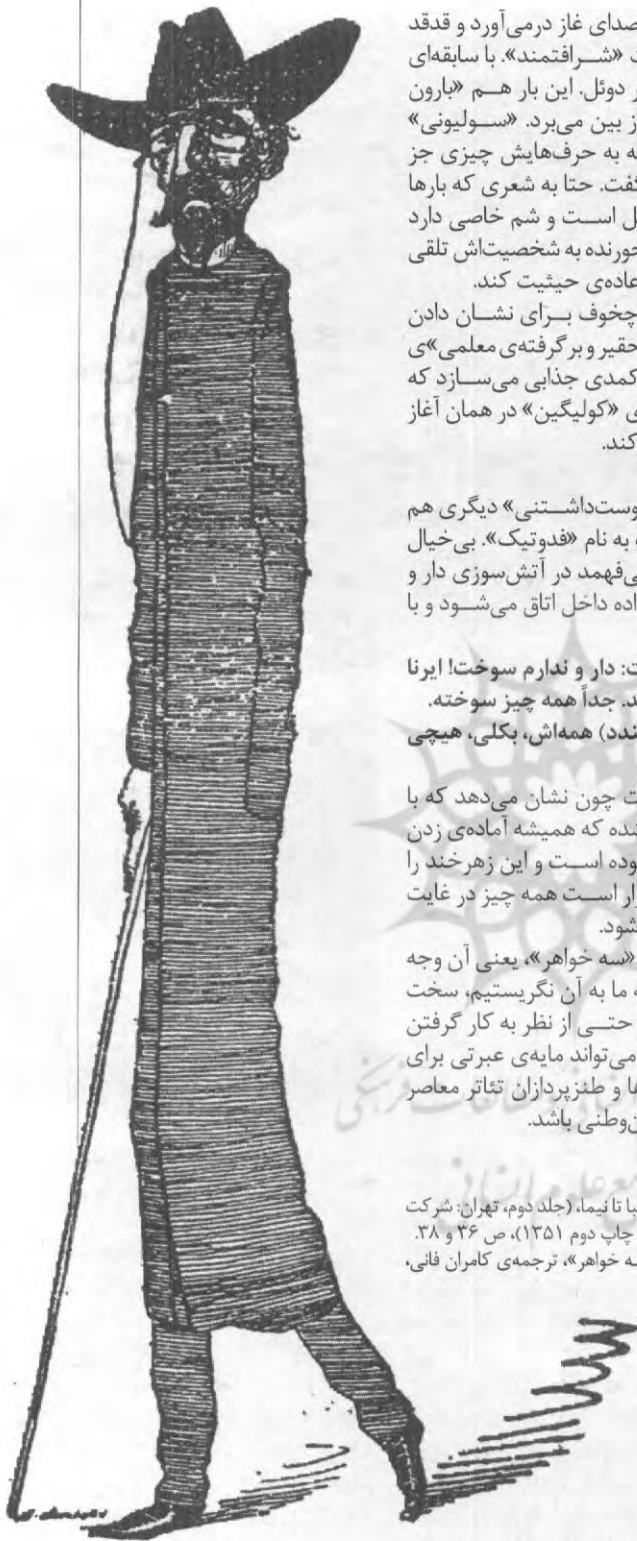 صدای غاز درمی‌آورد و قدقد
«شرافتمند». با سابقه‌ای
دوئل. این بار هم «بارون
از بین می‌برد. «سولیونی»
به حرف‌هایش چیزی جز
گفت. حتا به شعری که بارها
است و شم خاصی دارد
خورنده به شخصیت‌اش تلقی
عاده‌ی حیثیت کند.
چخوف برای نشان دادن
حقیر و بر گرفته‌ی معلمی»ی
کمدی جذابی می‌سازد که
«کولیگین» در همان آغاز
کند.
وست‌داشتنی» دیگری هم
به نام «فدوتیک». بی‌خیال
می‌فهمد در آتش‌سوزی دار و
داخل اتاق می‌شود و با
ت: دار و ندارم سوخت! ایرنا
د. جداً همه چیز سوخته.
ندد) همه‌اش، بکلی، هیچی
ت چون نشان می‌دهد که با
نده که همیشه آماده‌ی زدن
بوده است و این زهرخند را
است همه چیز در غایت
شود.
«سه خواهر»، یعنی آن وجه
ما به آن نگریستیم، سخت
حتی از نظر به کار گرفتن
می‌تواند مایه‌ی عبرتی برای
ها و طنزپردازان تئاتر معاصر
ن‌وطنی باشد.
با تا نیما، (جلد دوم، تهران: شرکت
چاپ دوم ۱۳۵۱)، ص ۳۶ و ۳۸.
سه خواهر»، ترجمه‌ی کامران فانی،